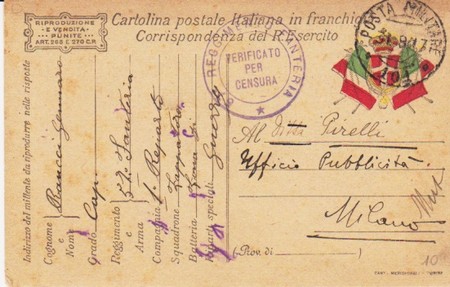 RIPRODUZIONE
E VENDITA
PUNITE
ART. 268 E. 276 C.P.
Cartolina postale Italiana in franchigia
Corrispondenza del R. Esercito
REGG. FANTERIA
VERIFICATO
PER
CENSURA
POSTA MILITARE
Indirizzo del mittente da riprodurre nelle risposte
Cognome
e
Nome
Bianci Gennaro
Grado Cap.
Reggimento
e
Arma
52. Fanteria
Compagnia 1. Reparto
Squadrone Zappatori
Batteria Zona di
Reparti speciali Guerra
Al Pirelli
Ufficio Pubblicità
Milano
(Prov. di
10